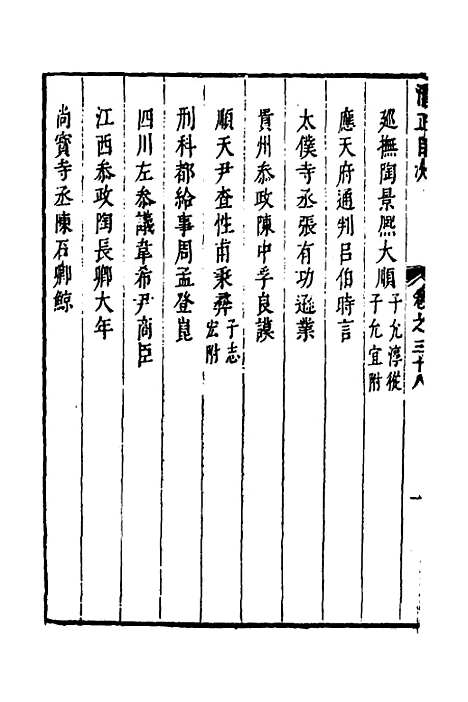 卷之三十八
一
巡撫陶景熈大順子允淳從子允宜附
應天府通判吕伯時言
太僕寺丞張有功遜業
貴州叅政陳中孚良謨
順天尹查性甫秉彞子志宏附
刑科都給事周孟登崑
四川左叅議韋希尹商臣
江西叅政陶長卿大年
尚寳寺丞陳石卿鯨